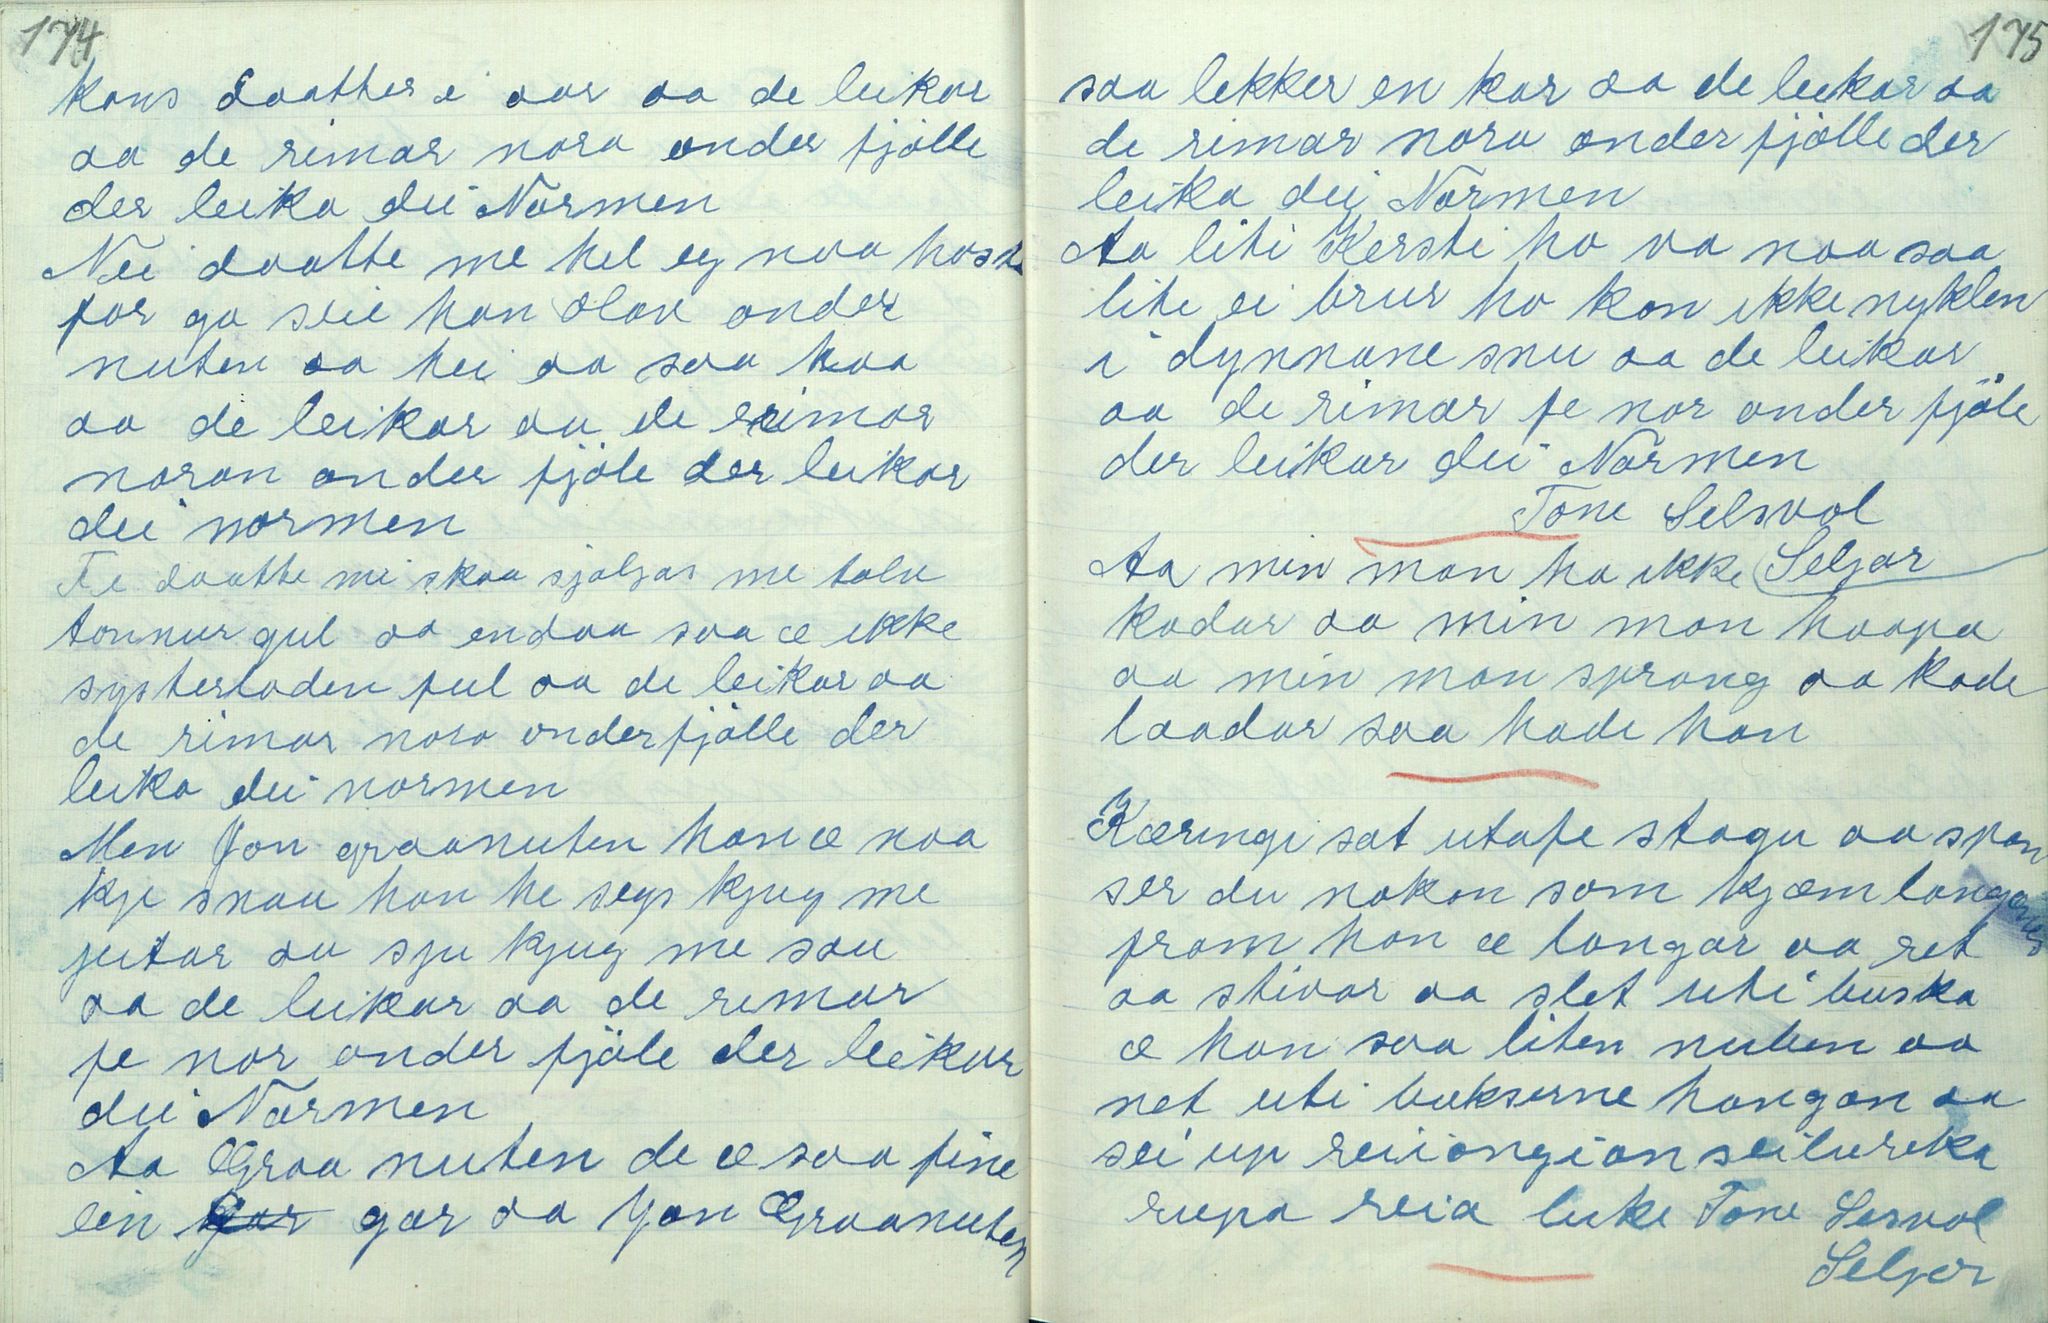 174
kans daatter i aar aa de leikar
aa de rimar nora onder fjølle
der leika dei Normen
Nei daatte me hel eg naa
for ga seie han Olav onder
nuten aa hei aa saa haa
aa de leikar aa de rimar
noran onder fjøle der leikar
dei normen
Te daatte mi skaa sjølgas me tolu
tonnur gul aa endaa saa æ ikke
systerloden ful aa de leikar aa
de rimar nora onder fjølle der
leika dei normen
Men Jon graanuten han æ naa
kje snau han he segs kjug me
jutar aa sju kjug me sau
aa de leikar aa de rimar
fe nor onder fjøle der leikar
dei Normen
Aa Graa nuten de æ saa fine
ein gar aa Jon Graanuten
175
saa lekker en kar aa de leikar aa
de rimar nora onder fjølle der
leika dei Normen
Aa liti Kersti ho va naa saa
lite ei brur ho kan ikke nyklen
i dynnane snu aa de leikar
aa de rimar fe nor onder fjøle
der leikar dei Normen
Tone Selsvol
Seljor
Aa min man ha ikke
kadar aa min man haapa
aa min man sprang aa kade
laadar saa hade han
Kæringi sat utafe stagu aa span
ser du nokon som kjæm langanes
fram han æ langar aa ret
aa stivar aa slet uti buska
æ han saa liten nuben aa
net uti bukserne hangan aa
sei up
rupa reia leike Tone Sesvol
Seljor